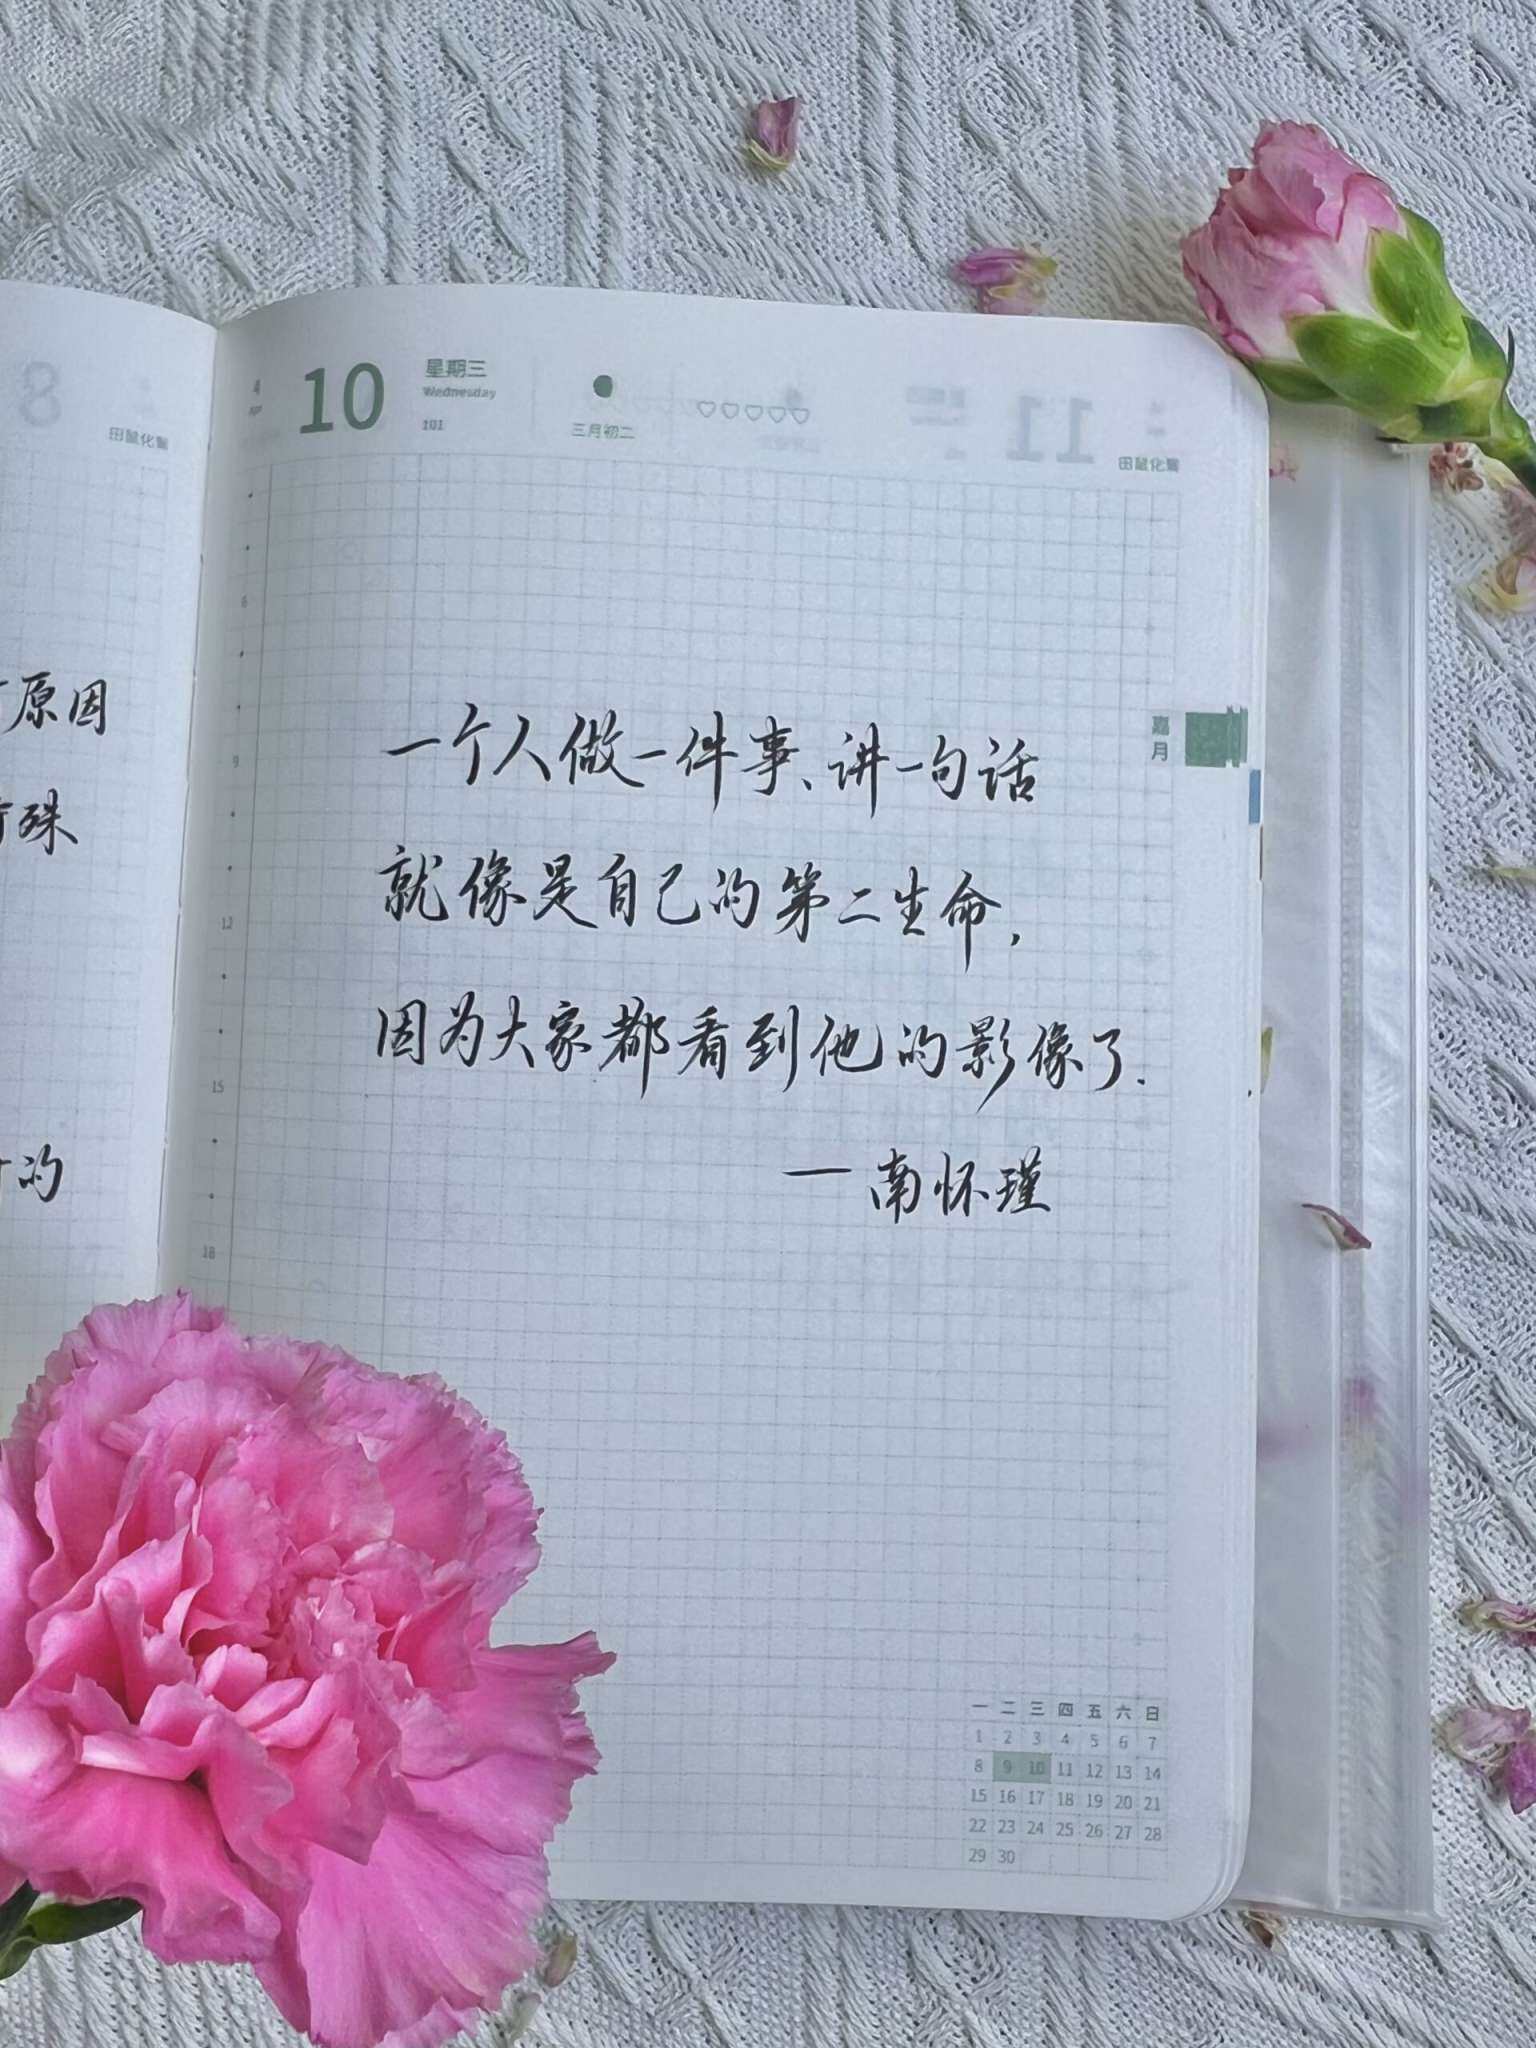 8
田鼠化鴽
原因
殊
的
4
Apr
10
星期三
Wednesday
101
三月初二
田鼠化鴽
6
9
12
15
18
嘉月
一个人做一件事、讲一句话
就像是自己的第二生命,
因为大家都看到他的影像了.
一南怀瑾
一 二 三 四 五 六 日
1 2 3 4 5 6 7
8 9 10 11 12 13 14
15 16 17 18 19 20 21
22 23 24 25 26 27 28
29 30